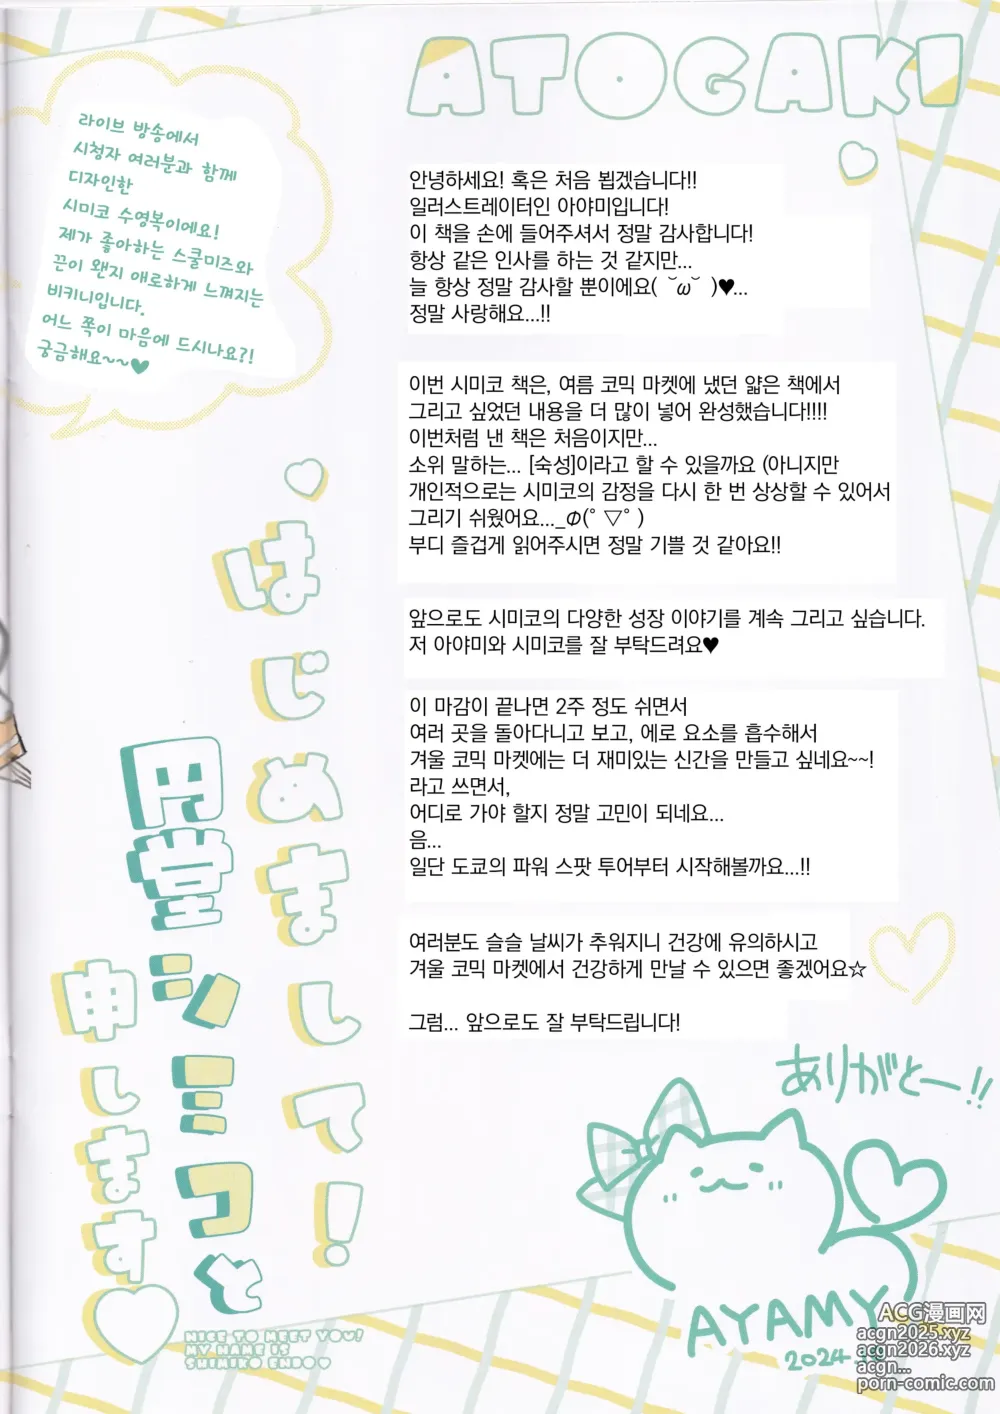 ATOGAKI
라이브 방송에서
시청자 여러분과 함께
디자인한
시미코 수영복이에요!
제가 좋아하는 스쿨미즈와
끈이 왠지 애로하게 느껴지는
비키니입니다.
어느 쪽이 마음에 드시나요?!
궁금해요~~♥
안녕하세요! 혹은 처음 뵙겠습니다!!
일러스트레이터인 아야미입니다!
이 책을 손에 들어주셔서 정말 감사합니다!
항상 같은 인사를 하는 것 같지만...
늘 항상 정말 감사할 뿐이에요( ˘ω˘ )♥...
정말 사랑해요...!!
이번 시미코 책은, 여름 코믹 마켓에 냈던 얇은 책에서
그리고 싶었던 내용을 더 많이 넣어 완성했습니다!!!!
이번처럼 낸 책은 처음이지만...
소위 말하는... [숙성]이라고 할 수 있을까요 (아니지만
개인적으로는 시미코의 감정을 다시 한 번 상상할 수 있어서
그리기 쉬웠어요..._Φ(ﾟ▽ﾟ)
부디 즐겁게 읽어주시면 정말 기쁠 것 같아요!!
앞으로도 시미코의 다양한 성장 이야기를 계속 그리고 싶습니다.
저 아야미와 시미코를 잘 부탁드려요♥
이 마감이 끝나면 2주 정도 쉬면서
여러 곳을 돌아다니고 보고, 에로 요소를 흡수해서
겨울 코믹 마켓에는 더 재미있는 신간을 만들고 싶네요~~!
라고 쓰면서,
어디로 가야 할지 정말 고민이 되네요...
음...
일단 도쿄의 파워 스팟 투어부터 시작해볼까요...!!
여러분도 슬슬 날씨가 추워지니 건강에 유의하시고
겨울 코믹 마켓에서 건강하게 만날 수 있으면 좋겠어요☆
그럼... 앞으로도 잘 부탁드립니다!
はじめまして!
円堂シミコと
申します♡
NICE TO MEET YOU!
MY NAME IS
SHIMIKO ENDO♥
ありがとー!!
AYAMY
2024
ACG漫画网
acgn2025.xyz
acgn2026.xyz
acgn...
porn-comic.com